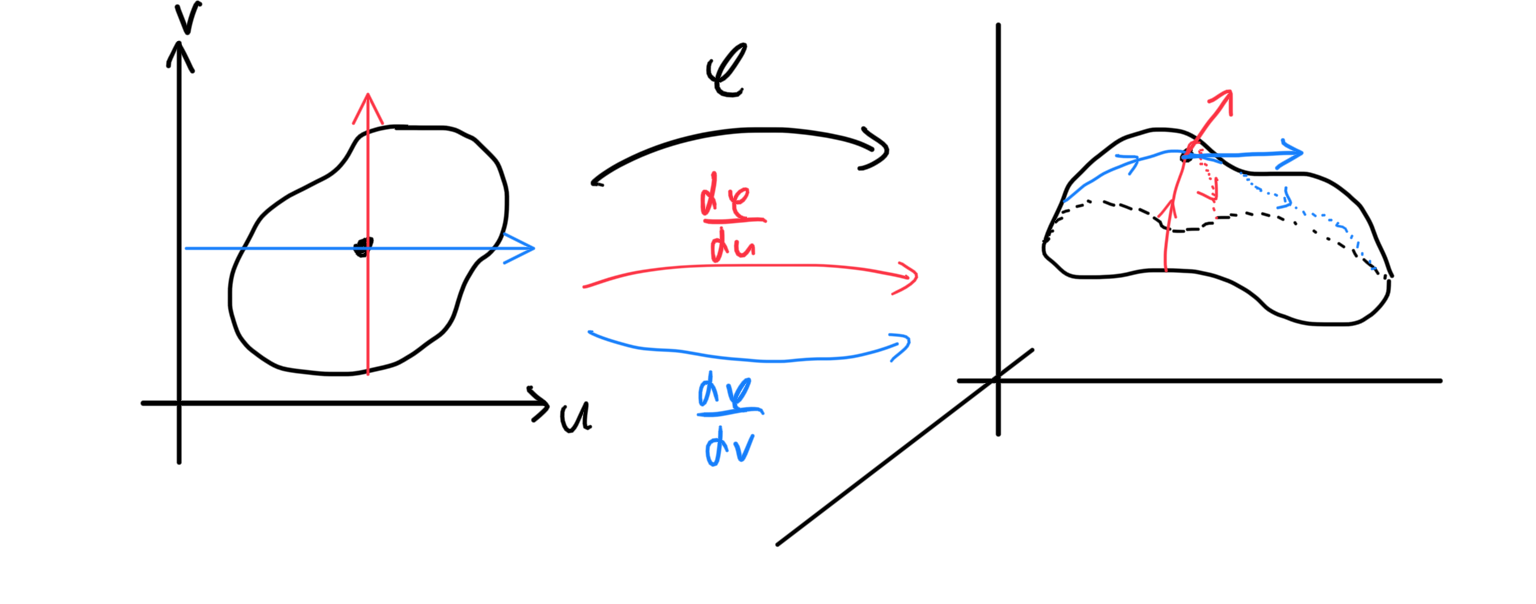 v
φ
dφ
du
u
dφ
dv